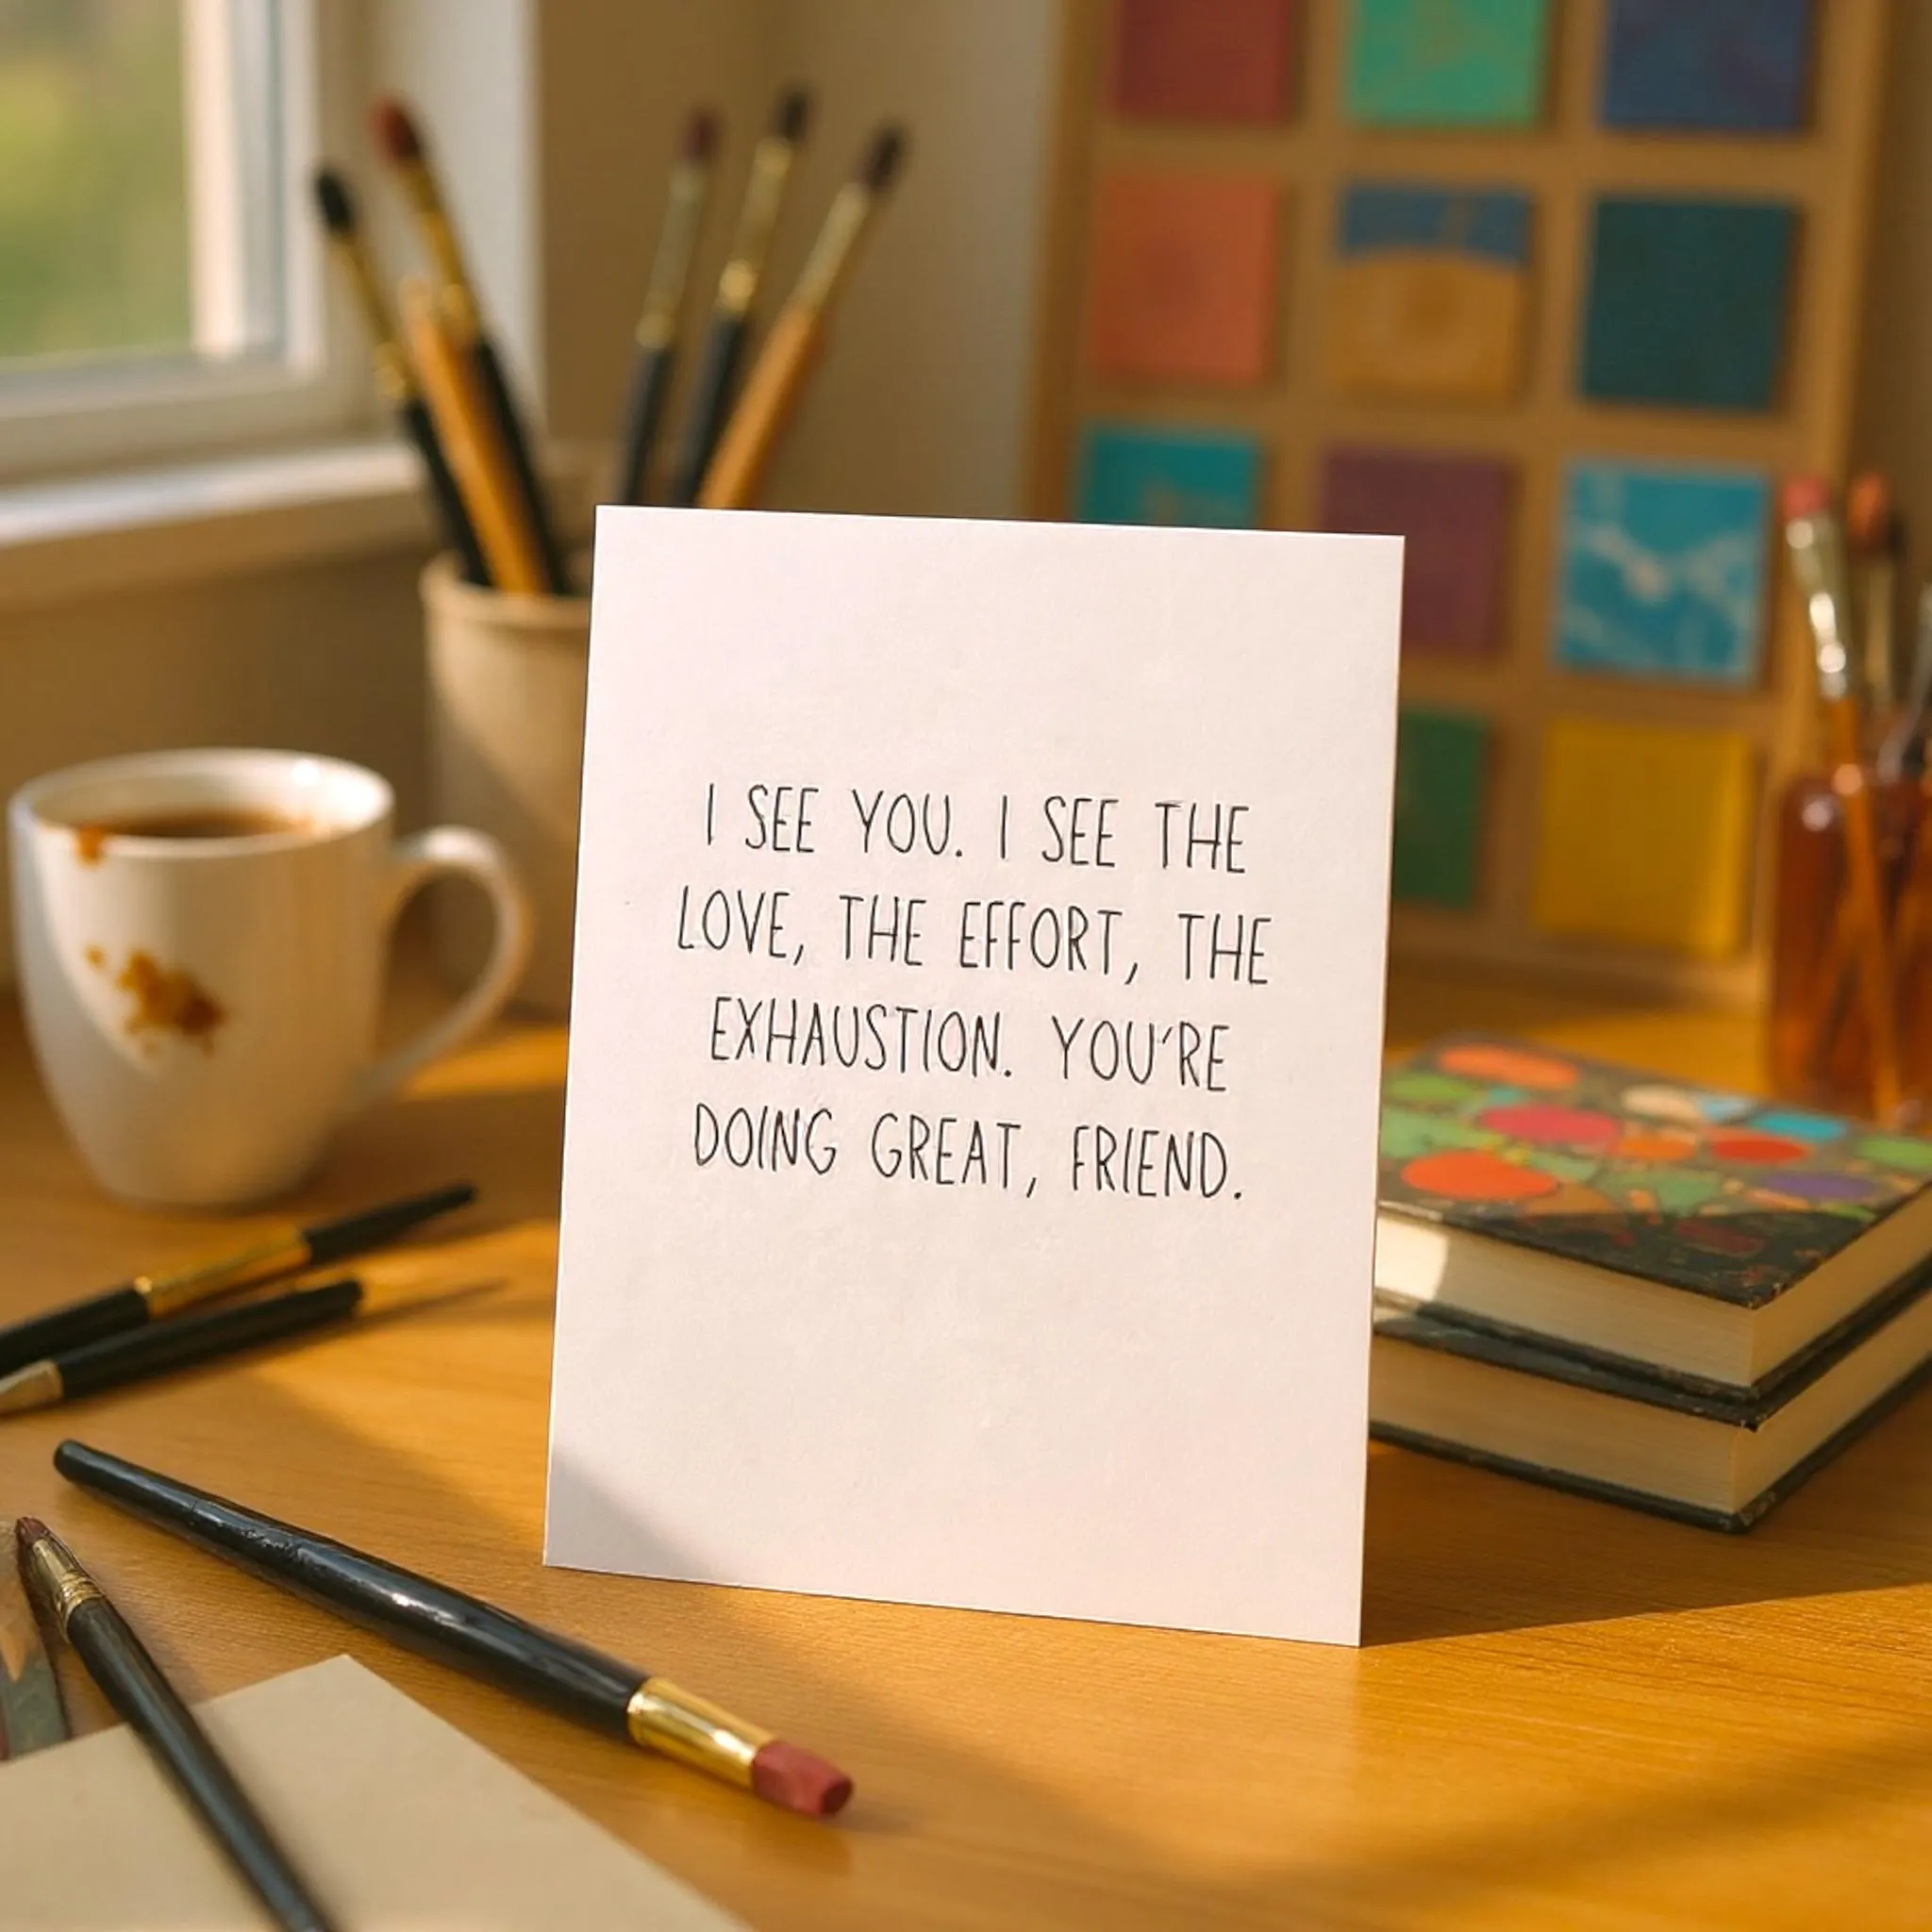 I SEE YOU. I SEE THE
LOVE, THE EFFORT, THE
EXHAUSTION. YOU'RE
DOING GREAT, FRIEND.